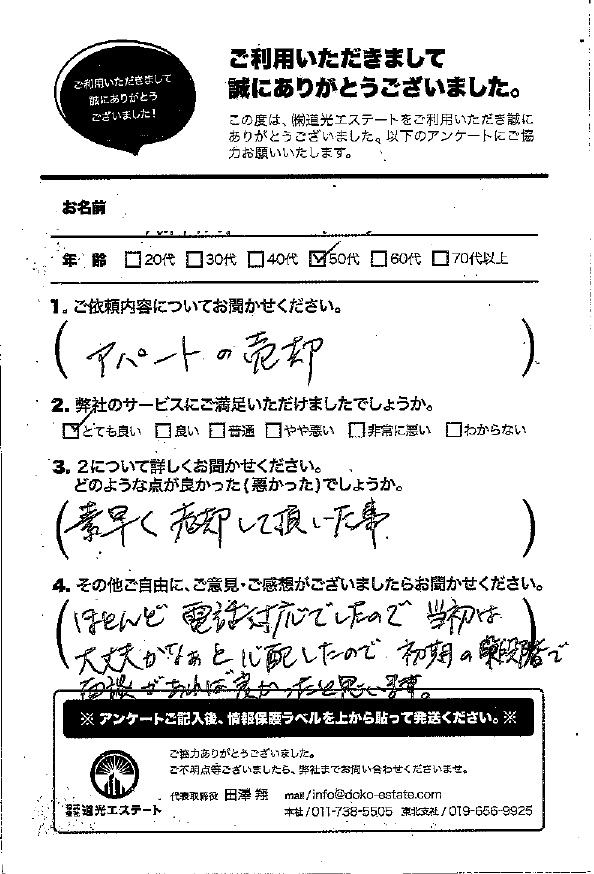 ご利用いただきまして
誠にありがとう
ございました!
ご利用いただきまして
誠にありがとうございました。
この度は、㈱道光エステートをご利用いただき誠に
ありがとうございました。以下のアンケートにご協
力お願いいたします。
お名前
年 齢 □20代 □30代 □40代 ☑50代 □60代 □70代以上
1. ご依頼内容についてお聞かせください。
(アパートの売却)
2. 弊社のサービスにご満足いただけましたでしょうか。
☑とても良い □良い □普通 □やや悪い □非常に悪い □わからない
3. 2について詳しくお聞かせください。
どのような点が良かった(悪かった)でしょうか。
(素早く売却して頂いた事)
4. その他ご自由に、ご意見・ご感想がございましたらお聞かせください。
(ほとんど電話対応でしたので 当初は
大丈夫かなぁと心配したので 初期の段階で
面談があれば良かったと思います。
※ アンケートご記入後、情報保護ラベルを上から貼って発送ください。※
ご協力ありがとうございました。
ご不明点等ございましたら、弊社までお問い合わせくださいませ。
代表取締役 田澤 翔 mail/info@doko-estate.com
株式会社 道光エステート 本社/011-738-5505 東北支社/019-656-9925